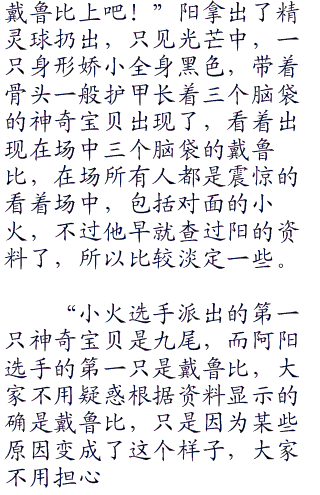 戴鲁比上吧！”阳拿出了精
灵球扔出，只见光芒中，一
只身形娇小全身黑色，带着
骨头一般护甲长着三个脑袋
的神奇宝贝出现了，看着出
现在场中三个脑袋的戴鲁
比，在场所有人都是震惊的
看着场中，包括对面的小
火，不过他早就查过阳的资
料了，所以比较淡定一些。
“小火选手派出的第一
只神奇宝贝是九尾，而阿阳
选手的第一只是戴鲁比，大
家不用疑惑根据资料显示的
确是戴鲁比，只是因为某些
原因变成了这个样子，大家
不用担心